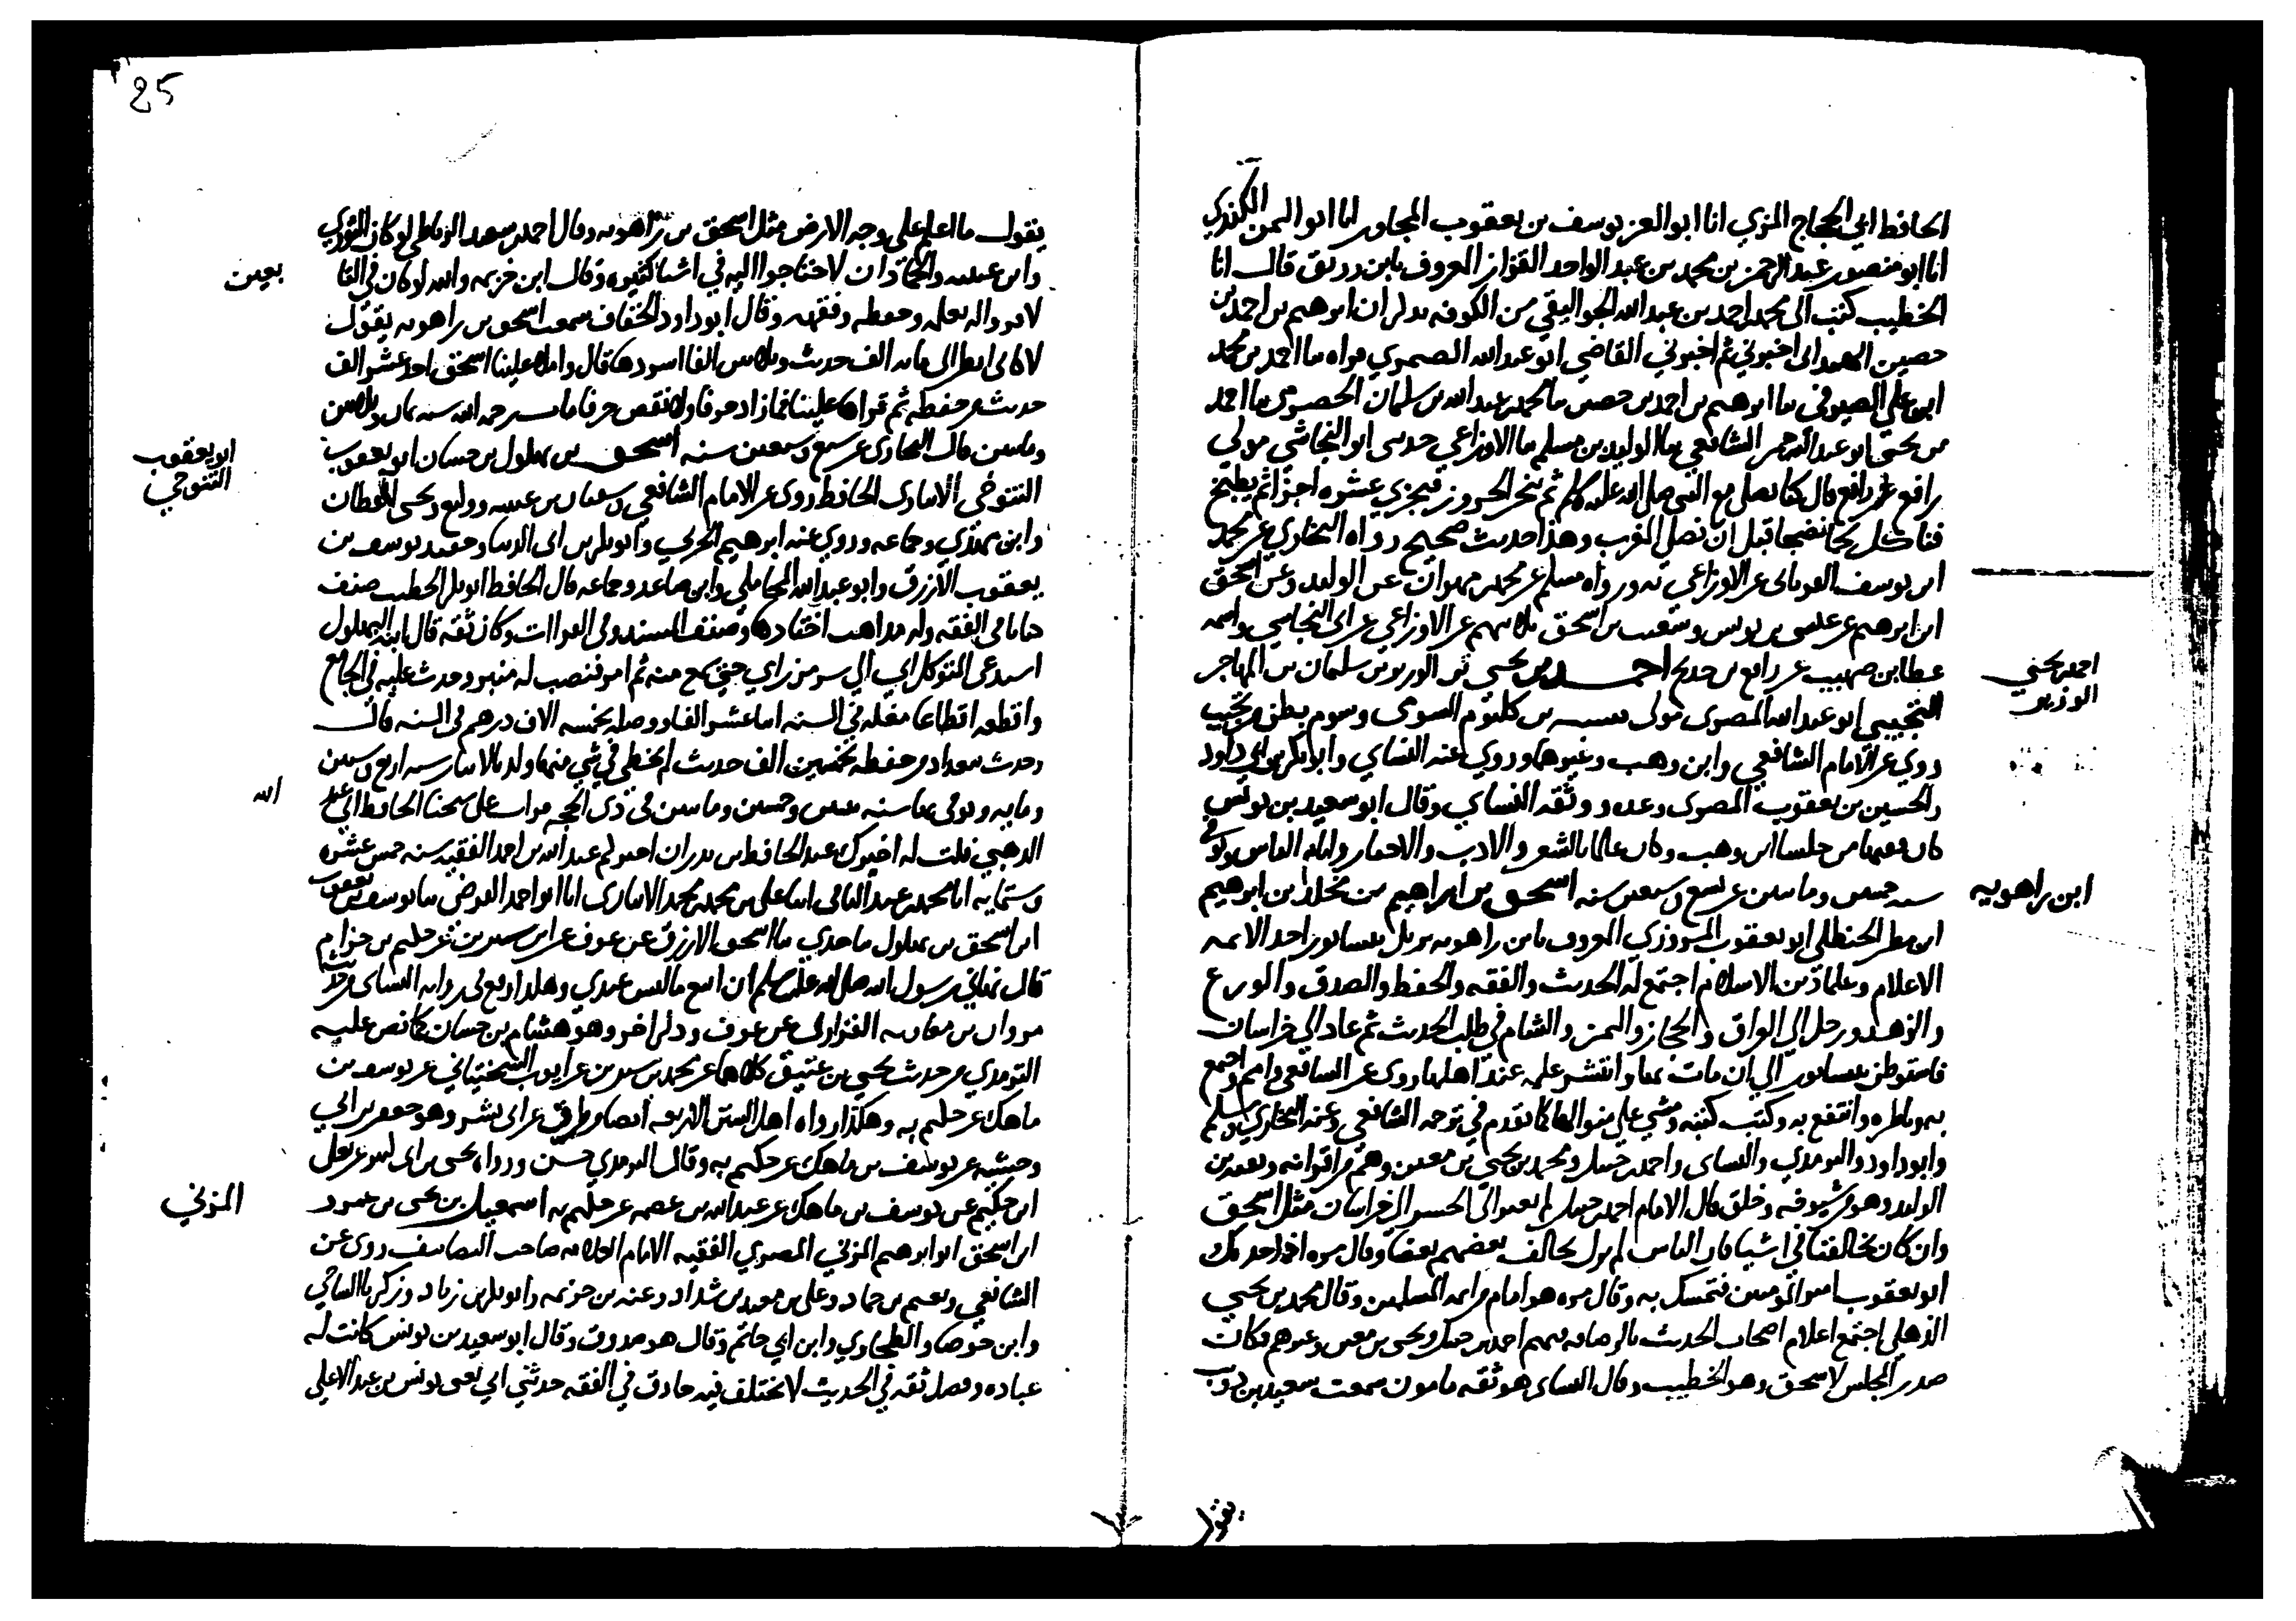 الحافظ ابي الحجاج المزي انا ابو العز يوسف بن يعقوب المجاور انا ابو اليمن الكندي
انا ابو منصور عبد الرحمن بن محمد بن عبد الواحد القزاز المعروف بابن زريق قال انا
الخطيب كتب الى محمد بن احمد بن عبد الله الجواليقي من الكوفه يذكر ان ابرهيم بن احمد بن
حصين الهمداني اخبرني ثم اخبرني القاضي ابو عبد الله الصيمري قراه نا احمد بن محمد
ابن علي الصيرفي نا ابرهيم بن احمد بن حصين نا محمد بن عبد الله بن سلمان الحضرمي نا احمد
بن يحيى ابو عبد الرحمن الشافعي نا الوليد بن مسلم نا الاوزاعي حدثني ابو النجاشي مولى
رافع عن رافع قال كنا نصلي مع النبي صلى الله عليه وسلم ثم ننحر الجزور فتجزي عشره اجزا ثم يطبخ
فناكل لحما نضجا قبل ان نصلي المغرب وهذا حديث صحيح رواه البخاري عن محمد
ابن يوسف الفريابي عن الاوزاعي به ورواه مسلم عن محمد بن مهران عن الوليد وعن اسحق
ابن ابرهيم عن عيسى بن يونس وشعيب بن اسحق ثلاثتهم عن الاوزاعي عن ابي النجاشي واسمه
عطا بن صهيب عن رافع بن خديج احمد بن يحيى بن الوزير بن سلمان بن المهاجر
التجيبي ابو عبد الله المصري مولى بن كلثوم السومي وسوم بطن من تجيب
روي عن الامام الشافعي وابن وهب وغيرهما وروي عنه النساي وابو بكر بن ابي داود
والحسين بن يعقوب المصري وعده ووثقه النساي وقال ابو سعيد بن يونس
كان فقيها من جلسا ابن وهب وكان عالما بالشعر والادب والاخبار وايام الناس وتوفي
سنه خمسين ومايتين عن تسع وسبعين سنه اسحق بن ابراهيم بن مخلد بن ابرهيم
ابن مطر الحنظلي ابو يعقوب المروزي المعروف بابن راهويه نزيل نيسابور احد الايمه
الاعلام وعلماء من الاسلام اجتمع له الحديث والفقه والحفظ والصدق والورع
والزهد ورحل الى العراق والحجاز واليمن والشام في طلب الحديث ثم عاد الى خراسان
فاستوطن نيسابور الى ان مات بها وانتشر علمه عند اهلها روى عن الشافعي وامم واجتمع
به وناظره وانتفع به وكتب كتبه ومشي على منوالها كما تقدم في ترجمه الشافعي وعنه البخاري ومسلم
وابو داود والترمذي والنساي واحمد بن حنبل ومحمد بن يحيى بن معين وهم من اقرانه وبقيه بن
الوليد وهو من شيوخه وخلق قال الامام احمد بن حنبل لم يعبر الى الجسر الى خراسان مثل اسحق
وان كان يخالفنا في اشيا فان الناس لم يزل يخالف بعضهم بعضا وقال مره اذا حدثك
ابو يعقوب امير المومنين فتمسك به وقال مره هو امام من ايمه المسلمين وقال محمد بن يحيى
الذهلي اجتمع اعلام اصحاب الحديث بالرصافه منهم احمد بن حنبل ويحيى بن معين وغيرهم فكان
صدر المجلس لاسحق وهو الخطيب وقال النساي هو ثقه مامون سمعت سعيد بن ذويب
احمد بن يحيى
الوزير
ابن راهويه
يقول
25
يقول ما اعلم على وجه الارض مثل اسحق بن راهويه وقال احمد بن سعيد الرباطي لو كان الثوري
وابن عيينه والحمادان لاحتاجوا اليه في اشيا كثيره وقال ابن خزيمه والله لو كان في التا
بعين
لاقروا له بعلمه وحفظه وفقهه وقال ابو داود الخفاف سمعت اسحق بن راهويه يقول
لكاني انظر الى مايه الف حديث وثلاثين الفا اسردها قال واملا علينا اسحق احد عشر الف
حديث من حفظه ثم قراها علينا فما زاد حرفا ولا نقص حرفا مات رحمه الله سنه ثمان وثلثين
ومايتين قال البخاري عن سبع وسبعين سنه اسحق بن بهلول بن حسان ابو يعقوب
ابو يعقوب
التنوخي
التنوخي الانباري الحافظ روى عن الامام الشافعي وسفيان بن عيينه ووكيع ويحيى القطان
وابن مهدي وجماعه وروي عنه ابرهيم الحربي وابو بكر بن ابي الدنيا وحفيده يوسف بن
يعقوب الازرق وابو عبد الله المحاملي وابن صاعد وجماعه قال الحافظ ابو بكر الخطيب صنف
كتابا في الفقه وله مذاهب اختارها وصنف المسند وفي القراات وكان ثقه قال ابنه البهلول
استدعى المتوكل ابي الى سر من راي حتى سمع منه ثم امر فنصب له منبر وحدث عليه في الجامع
واقطعه اقطاعا مغله في السنه اثنا عشر الفا ووصله بخمسه الاف درهم في السنه قال
وحدث ببغداد من حفظه بخمسين الف حديث لم يخطي في شي منها ولد بالانبار سنه اربع وستين
ومايه وتوفي بها سنه اثنتين وخمسين ومايتين في ذي الحجه قرات على شيخنا الحافظ ابي عبد
الله
الذهبي قلت له اخبرك عبد الحافظ بن بدران اخبركم عبد الله بن احمد الفقيه سنه خمس عشره
وستمايه انا محمد بن عبد الباقي انا علي بن محمد بن محمد الانباري انا ابو احمد الفرضي نا يوسف بن يعقوب
ابن اسحق بن بهلول نا جدي نا اسحق الازرق عن عوف عن ابن سيرين عن حكيم بن حزام
قال نهاني رسول الله صلى الله عليه وسلم ان ابيع ما ليس عندي وهكذا وقع في روايه النساي من حديث
مروان بن معاويه الفزاري عن عوف وذكر اخر وهو هشام بن حسان كما نص عليه
الترمذي من حديث يحيى بن عتيق كلاهما عن محمد بن سيرين عن ايوب السختياني عن يوسف بن
ماهك عن حكيم به وهكذا رواه اهل السنن الاربعه ايضا من طرق عن ابي بشر وهو جعفر بن ابي
وحشيه عن يوسف بن ماهك عن حكيم به وقال الترمذي حسن ورواه يحيى بن ابي كثير عن يعلى
ابن حكيم عن يوسف بن ماهك عن عبد الله بن عصمه عن حكيم به اسمعيل بن يحيى بن عمرو
المزني
ابن اسحق ابو ابرهيم المزني المصري الفقيه الامام العلامه صاحب التصانيف روى عن
الشافعي ونعيم بن حماد وعلي بن معبد بن شداد وعنه بن خزيمه وابو بكر بن زياد وزكريا الساجي
وابن جوصا والطحاوي وابن ابي حاتم وقال هو صدوق وقال ابو سعيد بن يونس كانت له
عباده وفضل ثقه في الحديث لا يختلف فيه حاذق في الفقه حدثني ابي يعني يونس بن عبد الاعلى